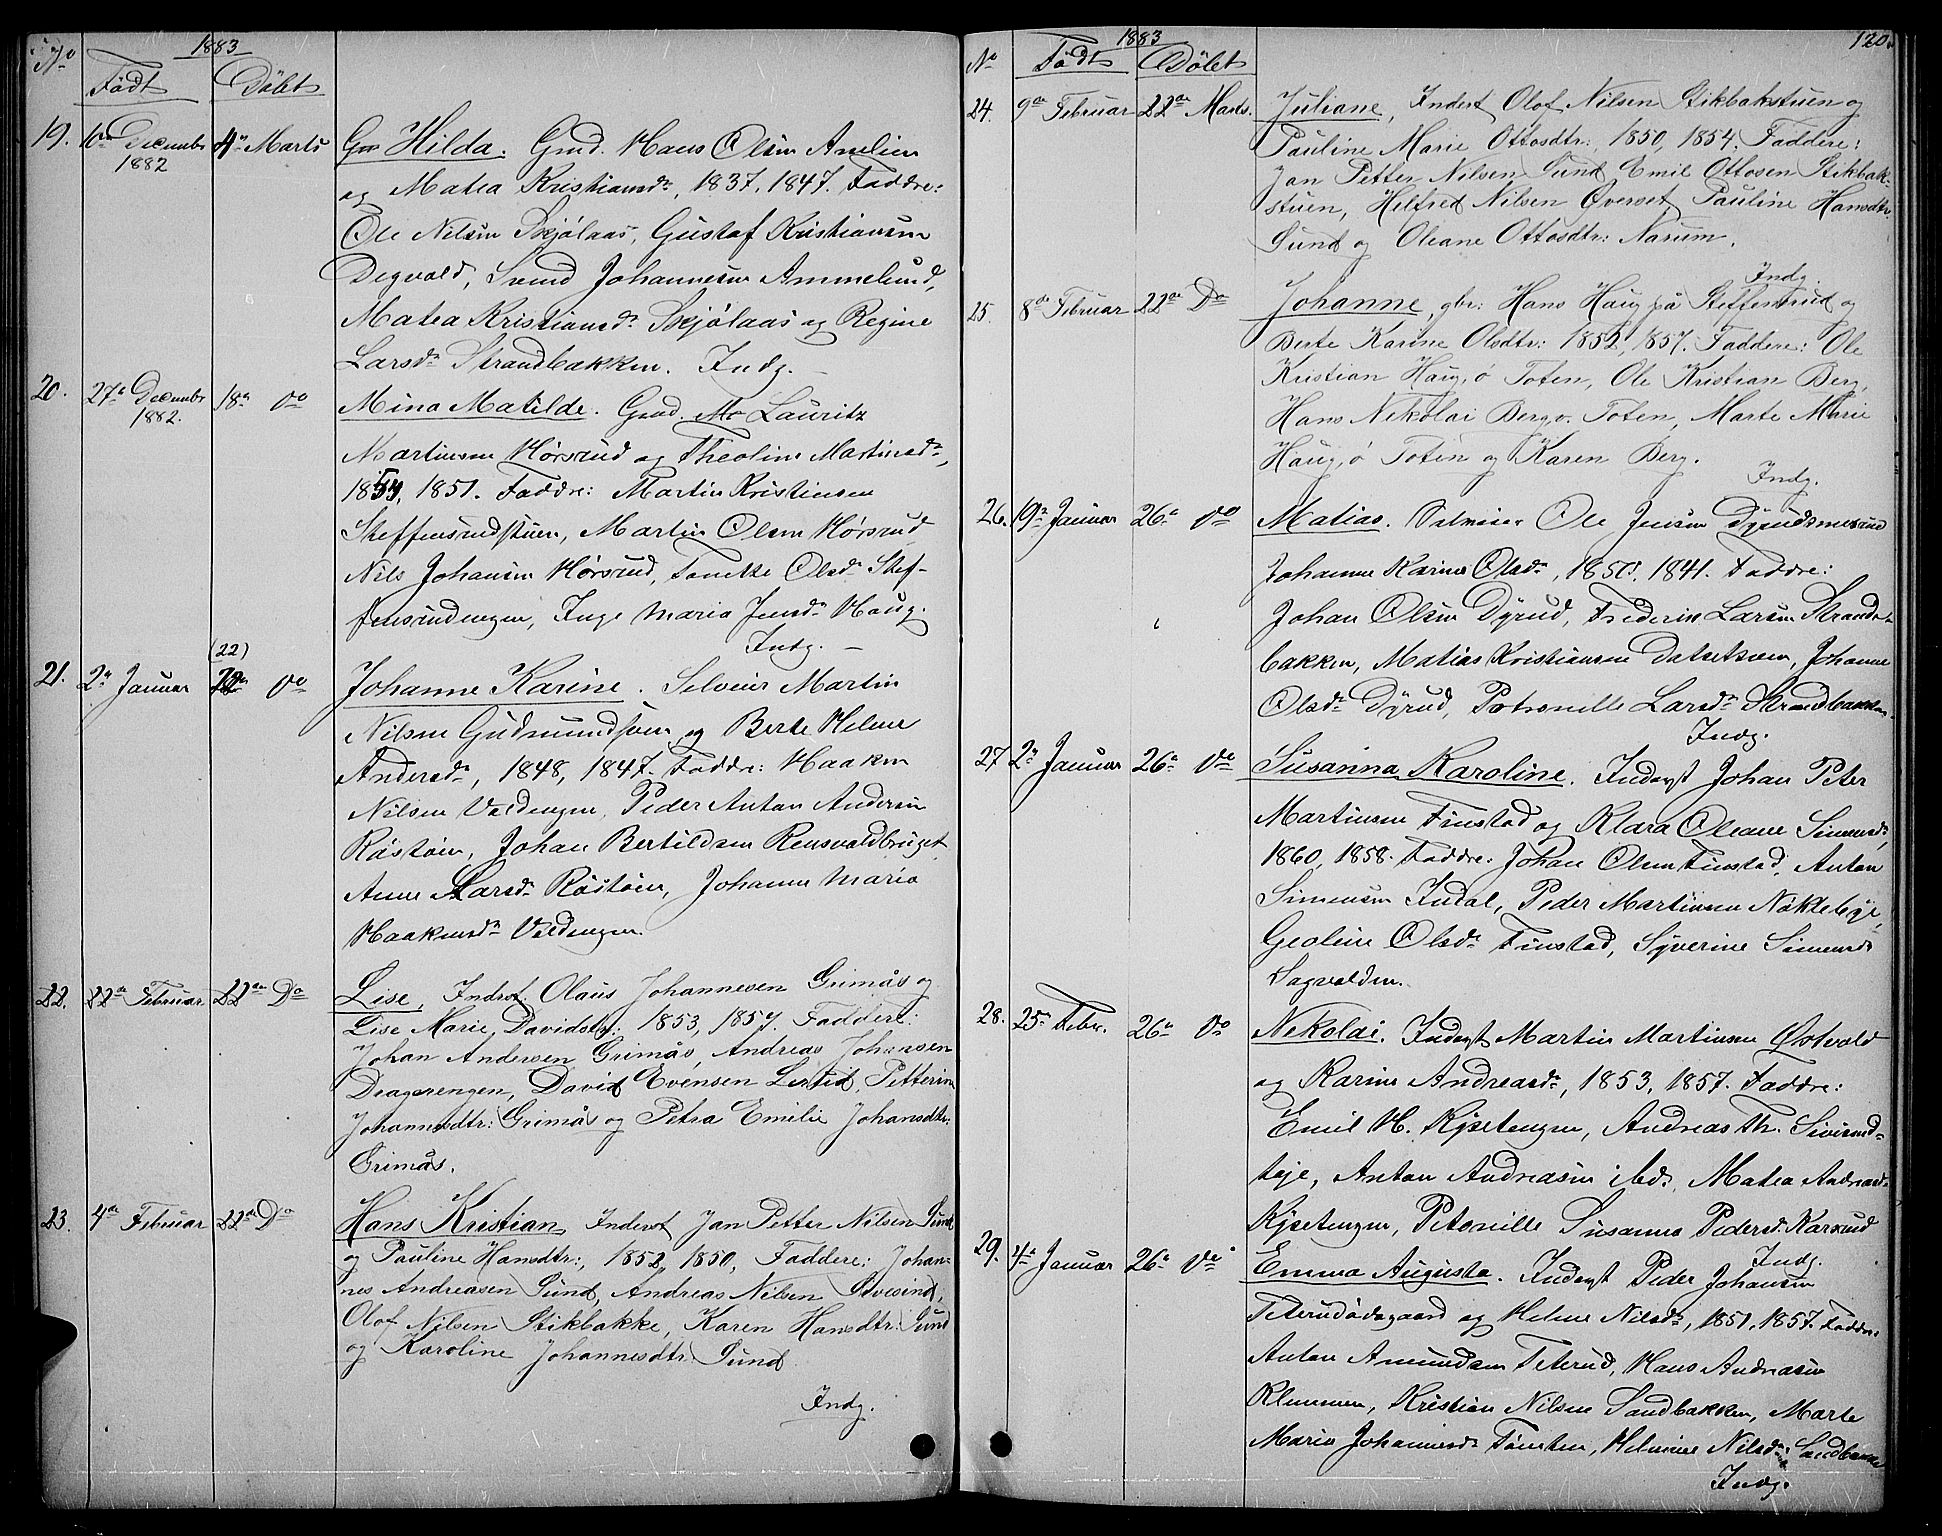 1883
No
Født Døbt
19. 10de Decembr 1882 4de Marts Hilda. Gmd. Hans Olsen Amlien
og Matea Kristiansdr, 1837, 1847. Faddre:
Ole Nilsen Skjølaas, Gustaf Kristiansen
Degvold, Svend Johannesen Ammelund,
Matea Kristiansdr Skjølaas og Regine
Larsdr Strandbakken. Indg. –
20. 27de Decembr 1882. 18de Do Mina Matilde. Gmd. Lauritz
Martinsen Hørsrud og Theoline Martinsdr,
1854, 1851. Faddre: Martin Kristiansen
Steffensrudstuen, Martin Olsen Hørsrud,
Nils Johansen Hørsrud, Tonette Olsdr Stef-
fensrudengen, Inge Maria Jensdr Haug.
Indg. –
(22)
21. 2de Januar Do Johanne Karine. Selveier Martin
Nilsen Gudmundstuen og Berte Helene
Andersdr, 1848, 1847. Faddre: Haaken
Nilsen Voldengen, Peder Anton Andersen
Røstøen, Johan Bertildsen Rensvoldbruget,
Anne Larsdr Røstøen, Johanne Maria
Haakensdr Voldengen.
22. 22de Februar 22de Do Lise, Inderst Olaus Johannesen Grimås og
Lise Marie Davidsdtr: 1853, 1857. Faddere:
Johan Andersen Grimås, Andreas Johansen
Dragerengen, David Evensen Lertid, Petterine
Johannesdtr: Grimås og Petra Emilie Johansdtr:
Grimås.
23. 4de Februar 22de Do Hans Kristian, Inderst Jan Petter Nilsen Sund
og Pauline Hansdtr:, 1852, 1850, Faddere: Johan-
nes Andreasen Sund, Andreas Nilsen Øvesind,
Olof Nilsen Stikbakke, Karen Hansdtr: Sund
og Karoline Johannesdtr: Sund
Indg.
120.
1883
No Født Døbt
24. 9de Februar 22de Marts. Juliane, Inderst Olof Nilsen Stikbakstuen og
Pauline Marie Ottosdtr:, 1850, 1854. Faddere:
Jan Petter Nilsen Sund, Emil Ottosen Stikbak-
stuen, Helfred Nilsen Øverset, Pauline Hansdtr:
Sund og Oleane Ottosdtr: Narum.
Indg.
25. 8de Februar 22de Do Johanne, gbr: Hans Haug på Steffensrud og
Berte Karine Olsdtr: 1852, 1857. Faddere: Ole
Kristian Haug, ø Toten, Ole Kristian Berg,
Hans Nekolai Berg, ø. Toten, Marte Marie
Haug, ø Toten og Karen Berg.
Indg.
26. 19de Januar 26de Do Matias. Selveier Ole Jensen
Johanne Karine Olsdr, 1850, 1841. Faddre:
Johan Olsen Dyrud, Frederik Larsen Strand-
bakken, Matias Kristiansen Johanne
Olsdr Dyrud, Petronille Larsdr Strandbakken.
Indg.
27 2de Januar 26de Do Susanna Karoline. Inderst Johan Peter
Martinsen Finstad og Klara Oleane Simensdr,
1860, 1858. Faddre: Johan Olsen Finstad, Anton
Simensen Indal, Peder Martinsen Nøkleby,
Geoline Olsdr Finstad, Syverine Simensdr
Sagvolden.
28. 25de Febr. 26de Do Nekolai. Inderst Martin Martinsen Østvold
og Karine Andreasdr, 1853, 1857. Faddre:
Emil H. Kjøstengen, Andreas Th. Sivesind-
teje, Anton Andreasen ibd, Matea Andreasdr
Kjøstengen, Petonille Susanna Pedersdr Karsrud
Indg.
29. 4de Januar 26de Do Emma Augusta. Inderst Peder Johansen
Teterudødegaard og Helene Nilsdr, 1851, 1857. Faddre:
Anton Amundsen Teterud, Hans Andreasen
Klemmen, Kristian Nilsen Sandbakken, Marte
Maria Johannesdr Tømten, Helmine Nilsdr Sandbakken
Indg.